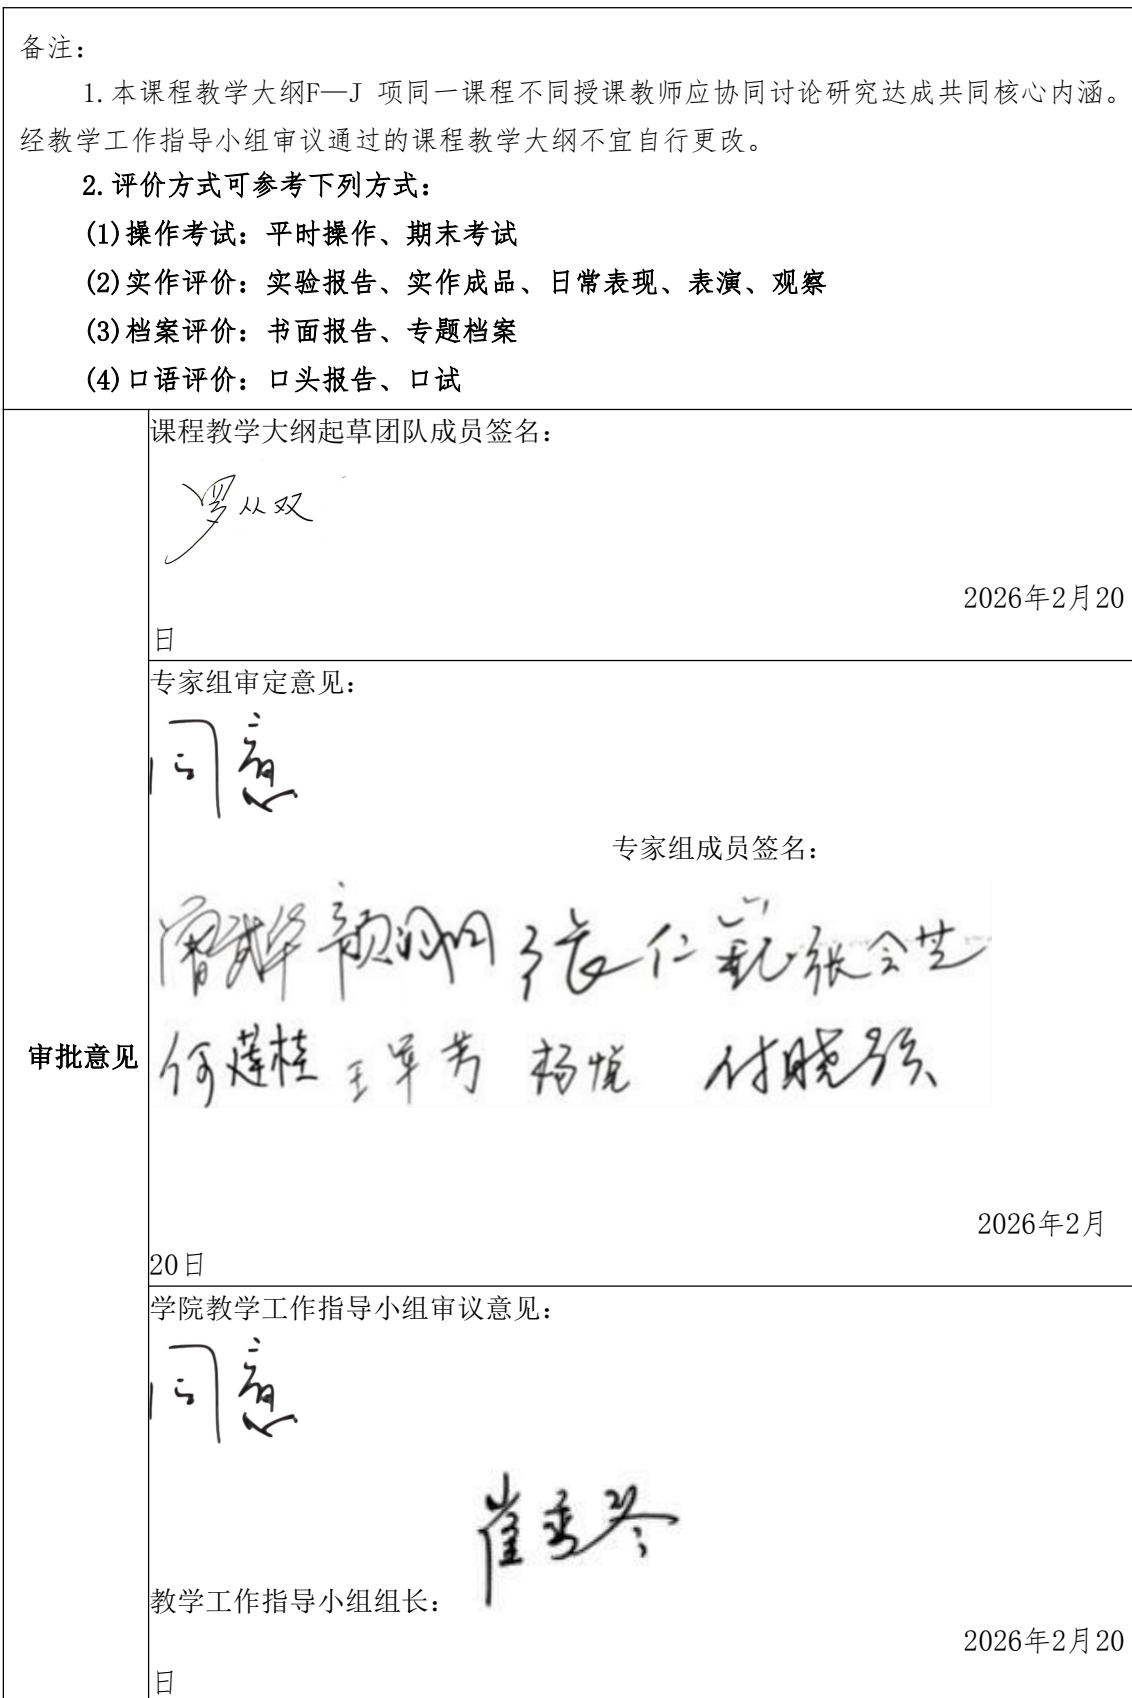 备注：
1.本课程教学大纲F—J 项同一课程不同授课教师应协同讨论研究达成共同核心内涵。
经教学工作指导小组审议通过的课程教学大纲不宜自行更改。
2.评价方式可参考下列方式：
(1)操作考试：平时操作、期末考试
(2)实作评价：实验报告、实作成品、日常表现、表演、观察
(3)档案评价：书面报告、专题档案
(4)口语评价：口头报告、口试
审批意见
课程教学大纲起草团队成员签名：
罗从双
2026年2月20
日
专家组审定意见：
同意
专家组成员签名：
张仁 张会芝
何莲桂 王军芳 杨悦 付晓强
2026年2月
20日
学院教学工作指导小组审议意见：
同意
崔秀琴
教学工作指导小组组长：
2026年2月20
日